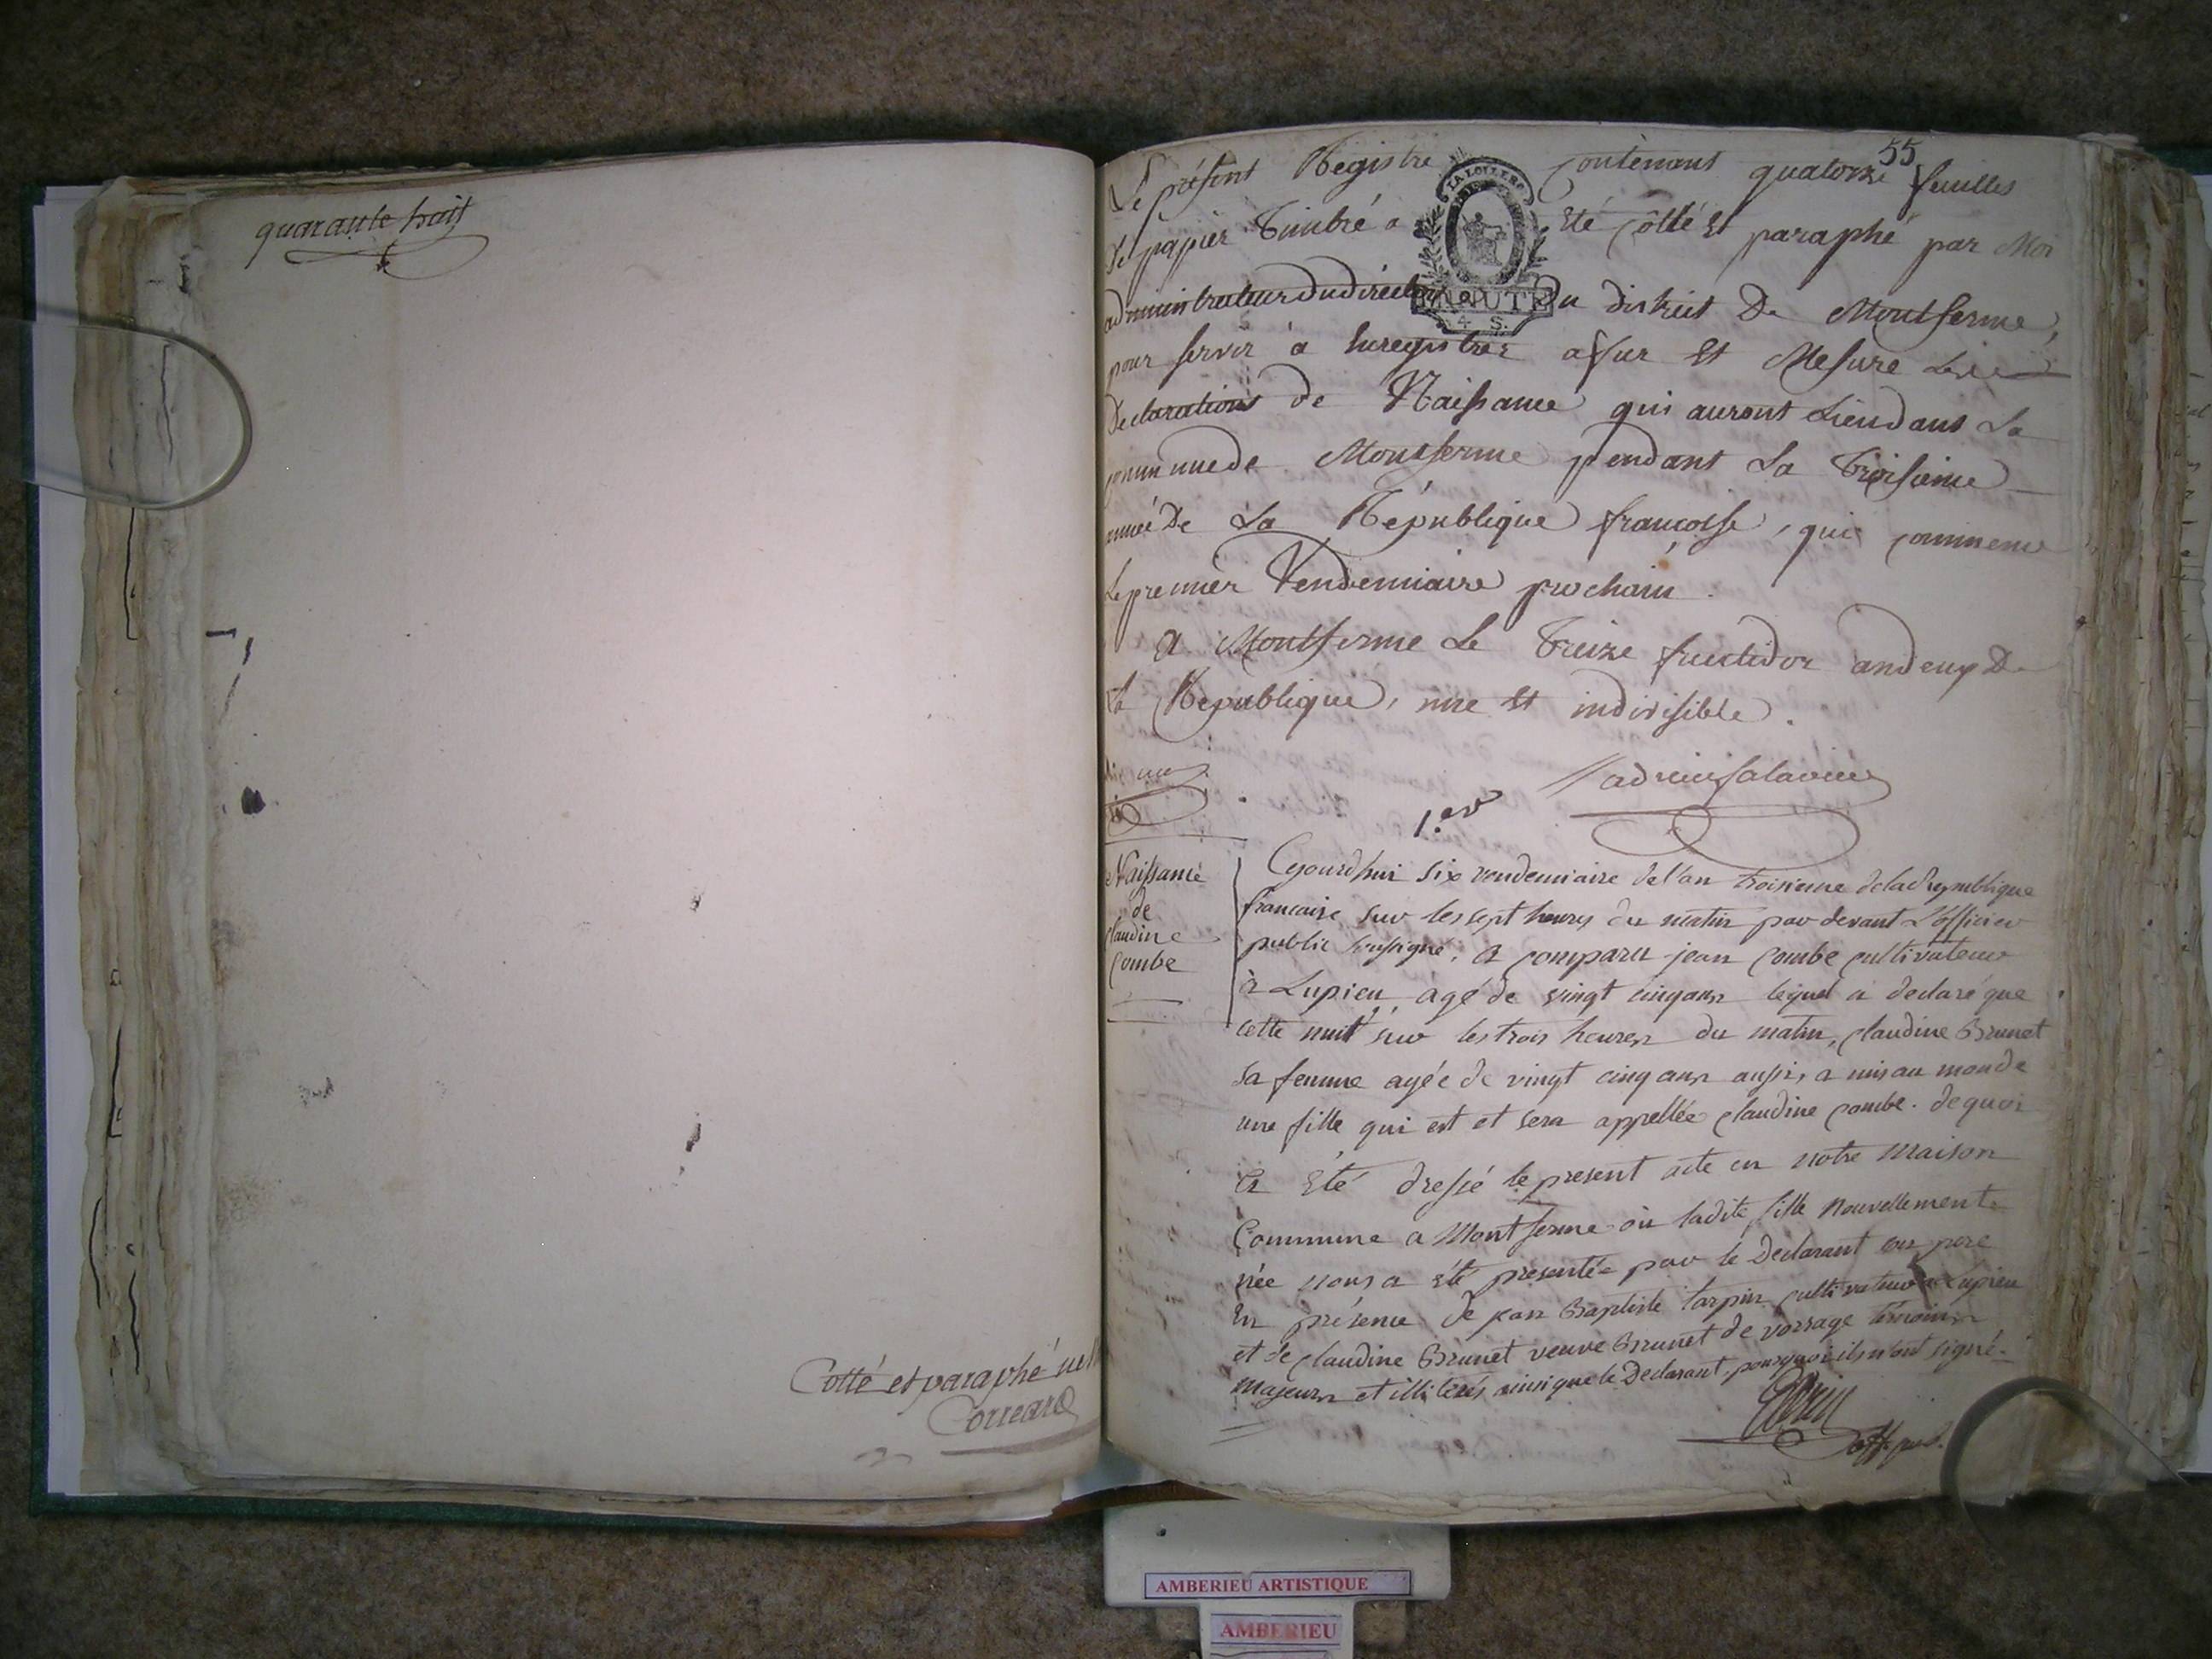 quarante huit
Cotté et paraphé
55
Le présent Régistre contenant quatorze feuilles
de papier Timbré a Eté côtté Et paraphé par Moi
administrateur du directoire Du district De Montferme,
pour servir à Enregistrer a fur Et Mesure Les
Declarations de Naissance qui auront Lieu dans La
commune de Montferme pendant La Troisieme
année De La République françoise, qui commence
Le premier Vendemiaire prochain.
A Montferme Le Treize fructidor an deux De
La République, une Et indivisible.
LA LOI LE RO
MINUTE
4 S.
1.er
Naissance
de
Claudine
Combe
Cejourdhui six vendemiaire de l'an troisieme de la Republique
francaise, sur les sept heures du matin par devant L'officier
public soussigné, a comparu jean Combe cultivateur
à Lupieu, agé de vingt cinq ans lequel a declaré que
cette nuit sur les trois heures du matin, Claudine Brunet
sa femme agée de vingt cinq ans aussi, a mis au monde
une fille qui est et sera appellée Claudine Combe. de quoi
a Eté dressé le present acte en notre Maison
Commune a Montferme où ladite fille Nouvellement
née nous a été presentée par le Declarant son pere
En présence de jean Baptiste tarpin cultivateur a Lupieu
et de Claudine Brunet veuve Brunet de vorrage temoins
majeurs et illiterés ainsi que le Declarant, pourquoi ils n'ont signé.
off. pub.
AMBERIEU ARTISTIQUE
AMBERIEU